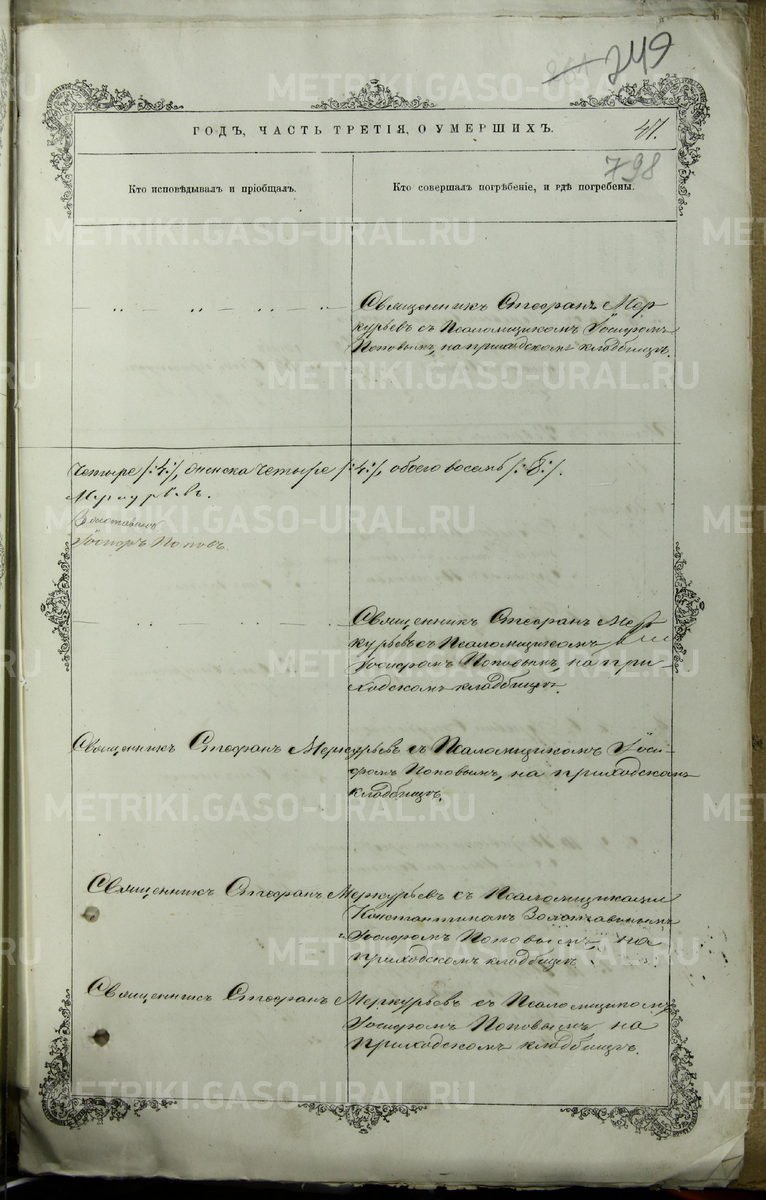 249
ГОДЪ, ЧАСТЬ ТРЕТІЯ, О УМЕРШИХЪ.
47.
798
Кто исповѣдывалъ и пріобщалъ.
Кто совершалъ погрѣбеніе, и гдѣ погребены.
Священникъ Стефанъ Мер
курьевъ съ Псаломщикомъ Іосифомъ
Поповымъ, на приходскомъ кладбищѣ.
четыре /:4:/, женска четыре /:4:/, обоего восемь /:8:/.
Меркурьевъ.
Золотавинъ
Іосифъ Поповъ.
Священникъ Стефанъ Мер
курьевъ съ Псаломщикомъ
Іосифомъ Поповымъ, на при
ходскомъ кладбищѣ.
Священникъ Стефанъ Меркурьевъ съ Псаломщикомъ Іоси-
фомъ Поповымъ, на приходскомъ
кладбищѣ.
Священникъ Стефанъ Меркурьевъ съ Псаломщиками
Константиномъ Золотавинымъ
и Іосифомъ Поповымъ, на
приходскомъ кладбищѣ.
Священникъ Стефанъ Меркурьевъ съ Псаломщикомъ
Іосифомъ Поповымъ на
приходскомъ кладбищѣ.
METRIKI.GASO-URAL.RU